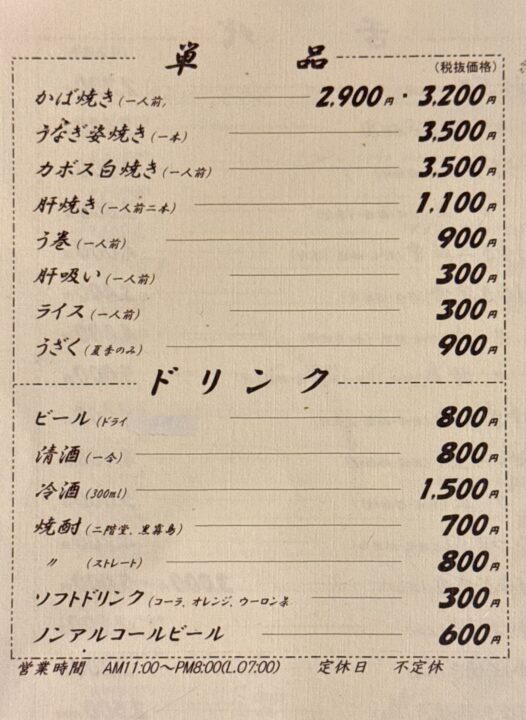 単品
(税抜価格)
かば焼き(一人前) 2,900円・3,200円
うなぎ姿焼き(一本) 3,500円
カボス白焼き(一人前) 3,500円
肝焼き(一人前二本) 1,100円
う巻(一人前) 900円
肝吸い(一人前) 300円
ライス(一人前) 300円
うざく(夏季のみ) 900円
ドリンク
ビール(ドライ 800円
清酒(一合) 800円
冷酒(300ml) 1,500円
焼酎(二階堂、黒霧島) 700円
〃(ストレート) 800円
ソフトドリンク(コーラ、オレンジ、ウーロン茶 300円
ノンアルコールビール 600円
営業時間 AM11:00～PM8:00(L.O7:00) 定休日 不定休